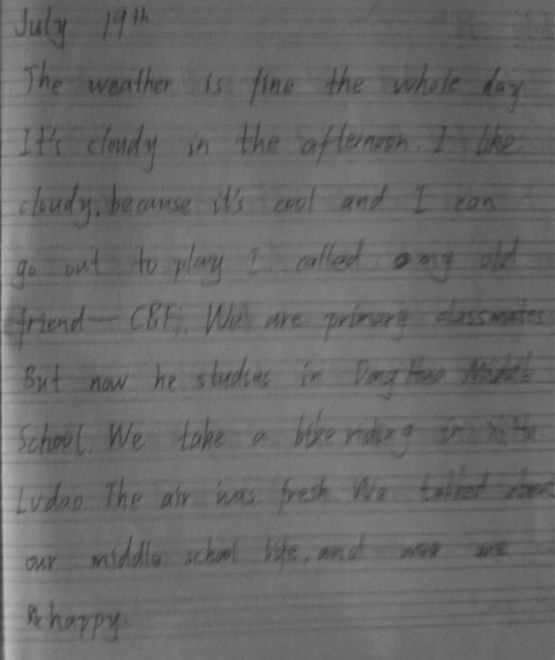 July 19th
The weather is fine the whole day
It's cloudy in the afternoon. I like
cloudy, because it's cool and I can
go out to play I called my old
friend— CBF. We are primary classmates
But now he studies in Dong Hua Middle
School. We take a bike riding in
Lvdao The air was fresh We talked about
our middle school life, and was are
happy.